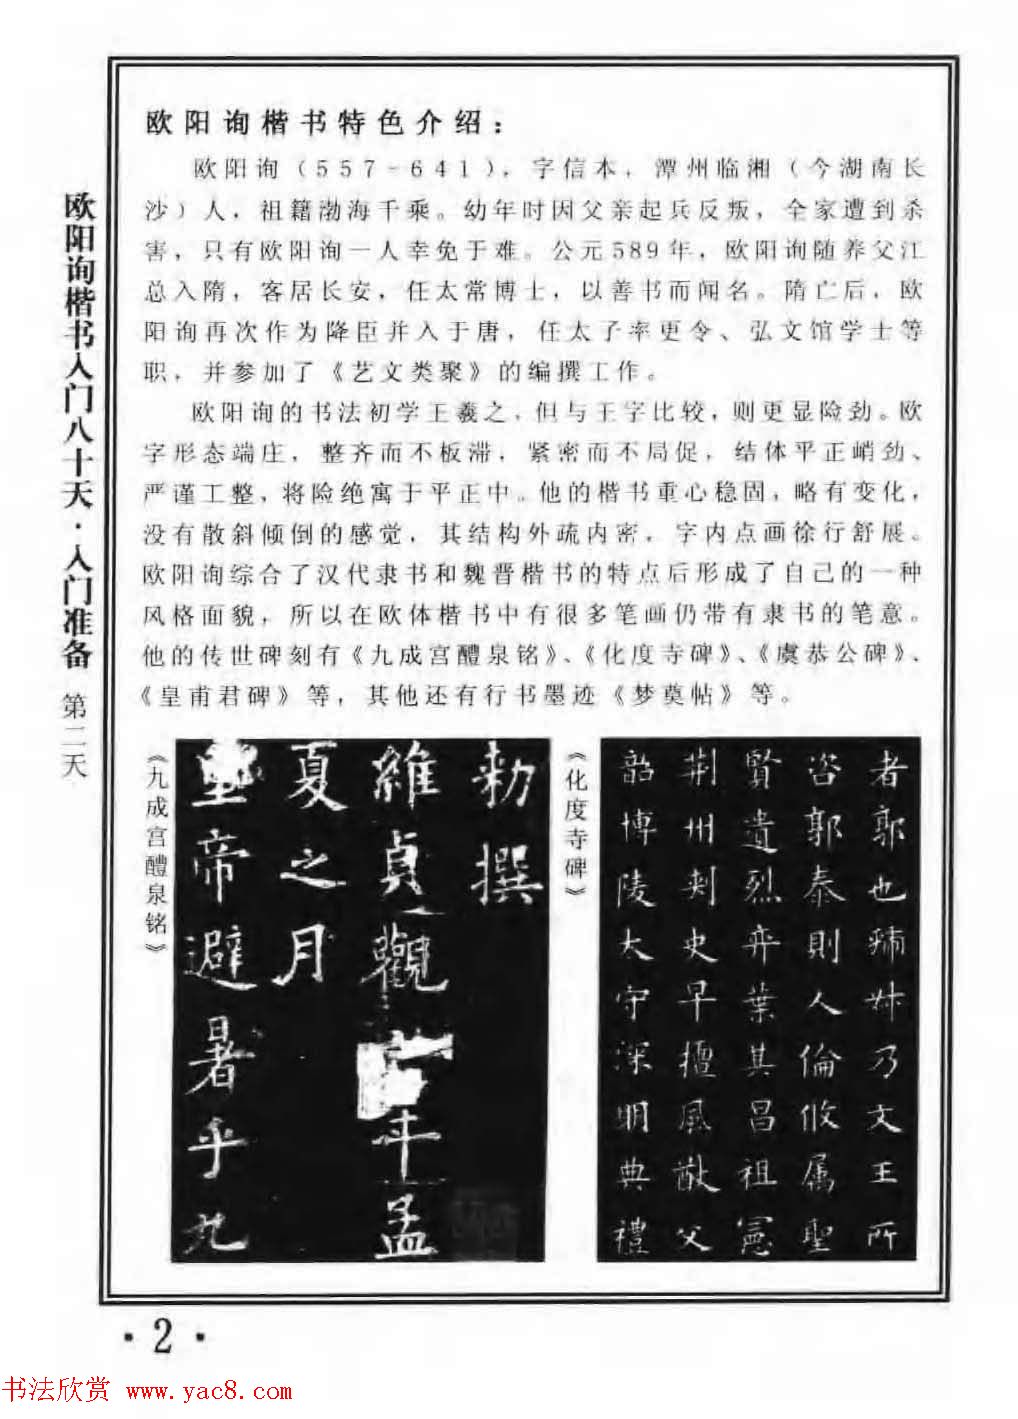 欧阳询楷书入门八十天·入门准备 第二天
欧阳询楷书特色介绍：
欧阳询（557-641），字信本，潭州临湘（今湖南长
沙）人，祖籍渤海千乘。幼年时因父亲起兵反叛，全家遭到杀
害，只有欧阳询一人幸免于难。公元589年，欧阳询随养父江
总入隋，客居长安，任太常博士，以善书而闻名。隋亡后，欧
阳询再次作为降臣并入于唐，任太子率更令、弘文馆学士等
职，并参加了《艺文类聚》的编撰工作。
欧阳询的书法初学王羲之，但与王字比较，则更显险劲。欧
字形态端庄，整齐而不板滞，紧密而不局促，结体平正峭劲、
严谨工整，将险绝寓于平正中。他的楷书重心稳固，略有变化，
没有散斜倾倒的感觉，其结构外疏内密，字内点画徐行舒展。
欧阳询综合了汉代隶书和魏晋楷书的特点后形成了自己的一种
风格面貌，所以在欧体楷书中有很多笔画仍带有隶书的笔意。
他的传世碑刻有《九成宫醴泉铭》、《化度寺碑》、《虞恭公碑》、
《皇甫君碑》等，其他还有行书墨迹《梦奠帖》等。
者郭也㷌叔乃文王所
咨郭泰則人倫攸属聖
賢遺烈弈葉其昌祖憲
荆州刺史早擅風猷父
韶博陵太守深明典禮
《化度寺碑》
勑撰
維貞觀六年孟
夏之月
皇帝避暑乎九
《九成宫醴泉铭》
·2·
书法欣赏 www.yac8.com